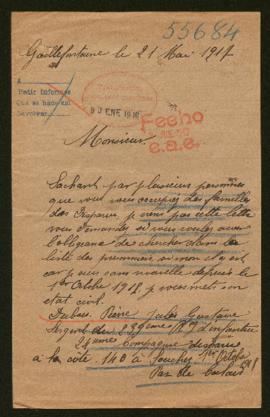 55684
Goëllefontaine le 21 Mai 1917
A
Petit Informe
Que se haga
Devolver
30 ENE 1918
Fecho
e.a.e.
Monsieur
Sachant par plusieurs personnes
que vous vous occupés des familles
des Disparus je viens par cette lettre
vous demander si vous voulez avoir
l'obligeance de chercher dans la
liste des prisonniers si mon
car je suis sans nouvelle depuis le
1er Octobre 1915 je vous mets son
état civil.
Dubus Pierre Jules Gustave
Sergent du 289ème RI d'infanterie
21ème Compagnie disparu
à la côte 140 à Souchez 1er Octobre 1915
Pas de Calais